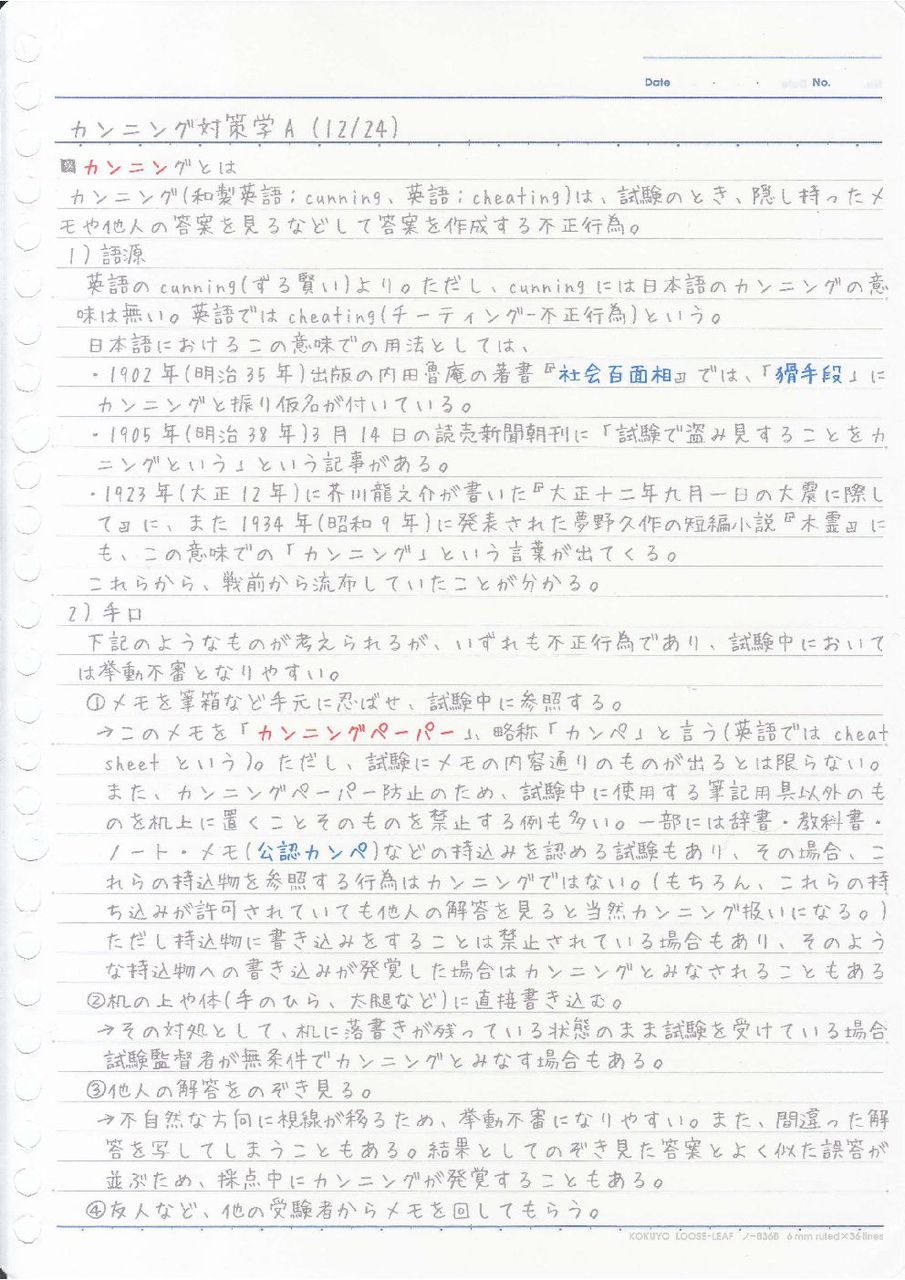 Date ・ ・ No.
カンニング対策学A (12/24)
※ カンニングとは
カンニング(和製英語;cunning、英語;cheating)は、試験のとき、隠し持ったメ
モや他人の答案を見るなどして答案を作成する不正行為。
1) 語源
英語のcunning(ずる賢い)より。ただし、cunningには日本語のカンニングの意
味は無い。英語ではcheating(チーティング-不正行為)という。
日本語におけるこの意味での用法としては、
・1902年(明治35年)出版の内田魯庵の著書『社会百面相』では、「猾手段」に
カンニングと振り仮名が付いている。
・1905年(明治38年)3月14日の読売新聞朝刊に「試験で盗み見することをカ
ニングという」という記事がある。
・1923年(大正12年)に芥川龍之介が書いた『大正十二年九月一日の大震に際し
て』に、また1934年(昭和9年)に発表された夢野久作の短編小説『木霊』に
も、この意味での「カンニング」という言葉が出てくる。
これらから、戦前から流布していたことが分かる。
2) 手口
下記のようなものが考えられるが、いずれも不正行為であり、試験中において
は挙動不審となりやすい。
①メモを筆箱など手元に忍ばせ、試験中に参照する。
→このメモを「カンニングペーパー」、略称「カンペ」と言う(英語ではcheat
sheetという)。ただし、試験にメモの内容通りのものが出るとは限らない。
また、カンニングペーパー防止のため、試験中に使用する筆記用具以外のも
のを机上に置くことそのものを禁止する例も多い。一部には辞書・教科書・
ノート・メモ(公認カンペ)などの持込みを認める試験もあり、その場合、こ
れらの持込物を参照する行為はカンニングではない。(もちろん、これらの持
ち込みが許可されていても他人の解答を見ると当然カンニング扱いになる。)
ただし持込物に書き込みをすることは禁止されている場合もあり、そのよう
な持込物への書き込みが発覚した場合はカンニングとみなされることもある
②机の上や体(手のひら、太腿など)に直接書き込む。
→その対処として、机に落書きが残っている状態のまま試験を受けている場合
試験監督者が無条件でカンニングとみなす場合もある。
③他人の解答をのぞき見る。
→不自然な方向に視線が移るため、挙動不審になりやすい。また、間違った解
答を写してしまうこともある。結果としてのぞき見た答案とよく似た誤答が
並ぶため、採点中にカンニングが発覚することもある。
④友人など、他の受験者からメモを回してもらう。
KOKUYO LOOSE-LEAF ノ-836B 6mm ruled×36 lines